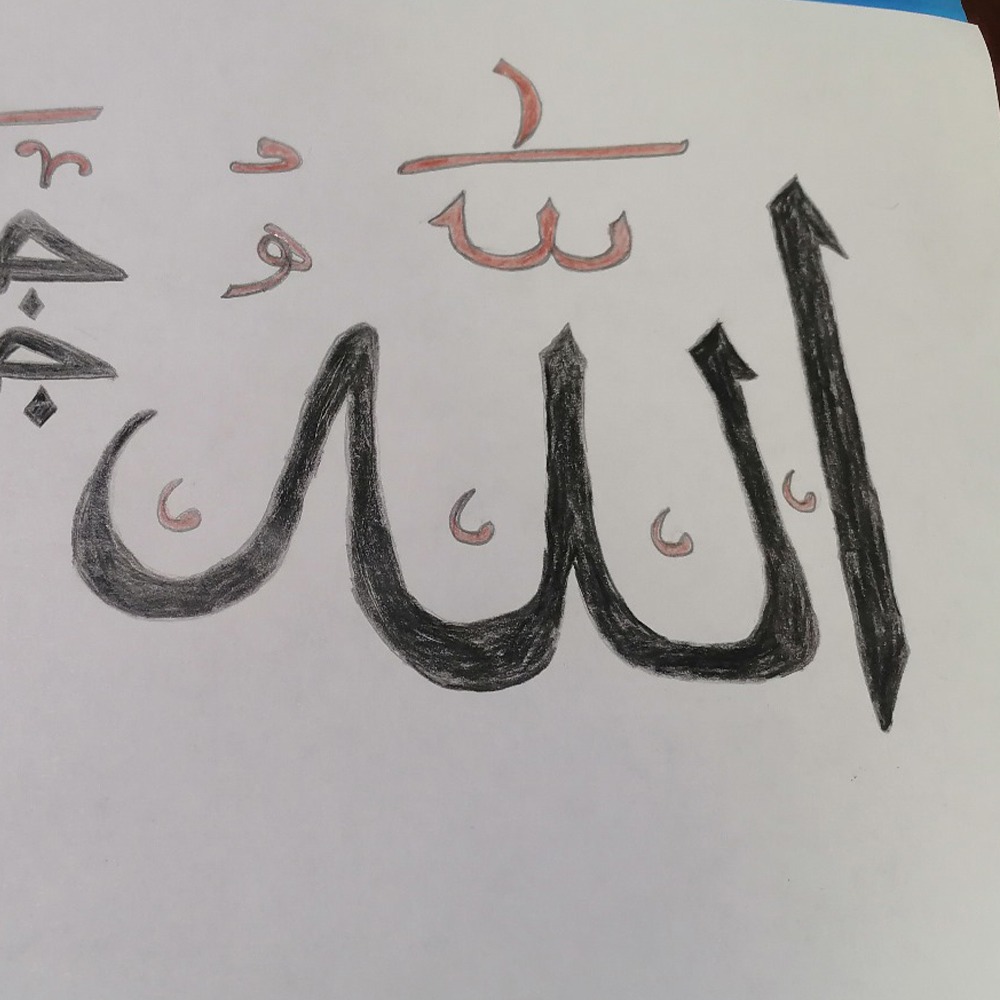 اللَّٰهُ